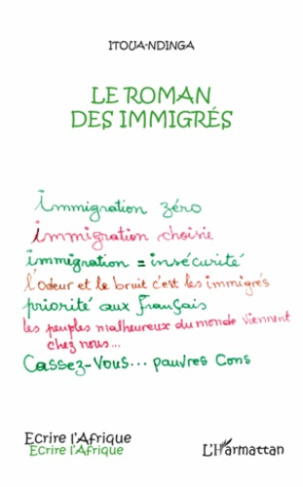 ITOUA-NDINGA
LE ROMAN
DES IMMIGRÉS
immigration zéro
immigration choisie
immigration = insécurité
l'odeur et le bruit c'est les immigrés
priorité aux français
les peuples malheureux du monde viennent
chez nous...
Cassez-Vous... pauvres Cons
Ecrire l'Afrique
Ecrire l'Afrique
L'Harmattan